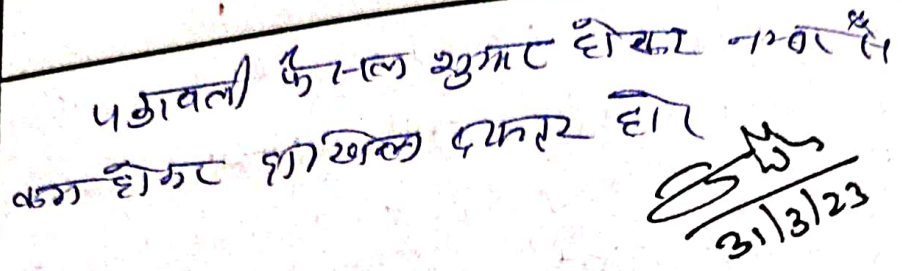 पत्रावली फैसल शुमार होकर नम्बर से
कम होकर दाखिल दफ्तर हो।
31/3/23